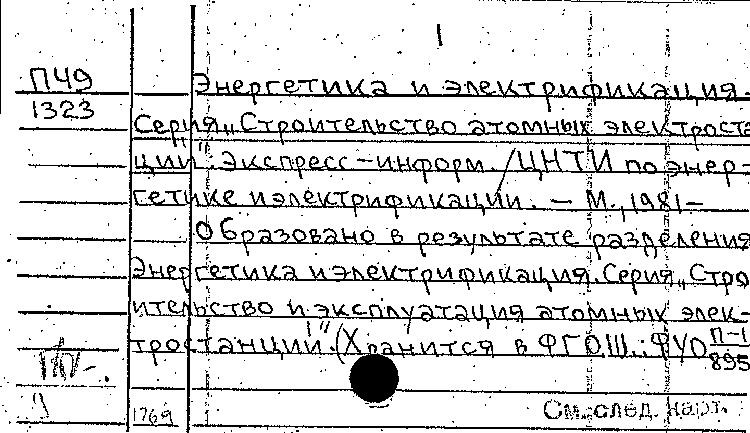 1
П49 Энергетика и электрификация.
1323
Серия „Строительство атомных электроста
ции". Экспресс-информ. / ЦНТИ по энер-
гетике и электрификации. - М., 1981-
Образовано в результате разделения
Энергетика и электрификация. Серия „Стро
ительство и эксплуатация атомных элек-
тростанций". (Хранится в ФГО, Ш.; ФУО П-1
895
1769
См. след. карт.